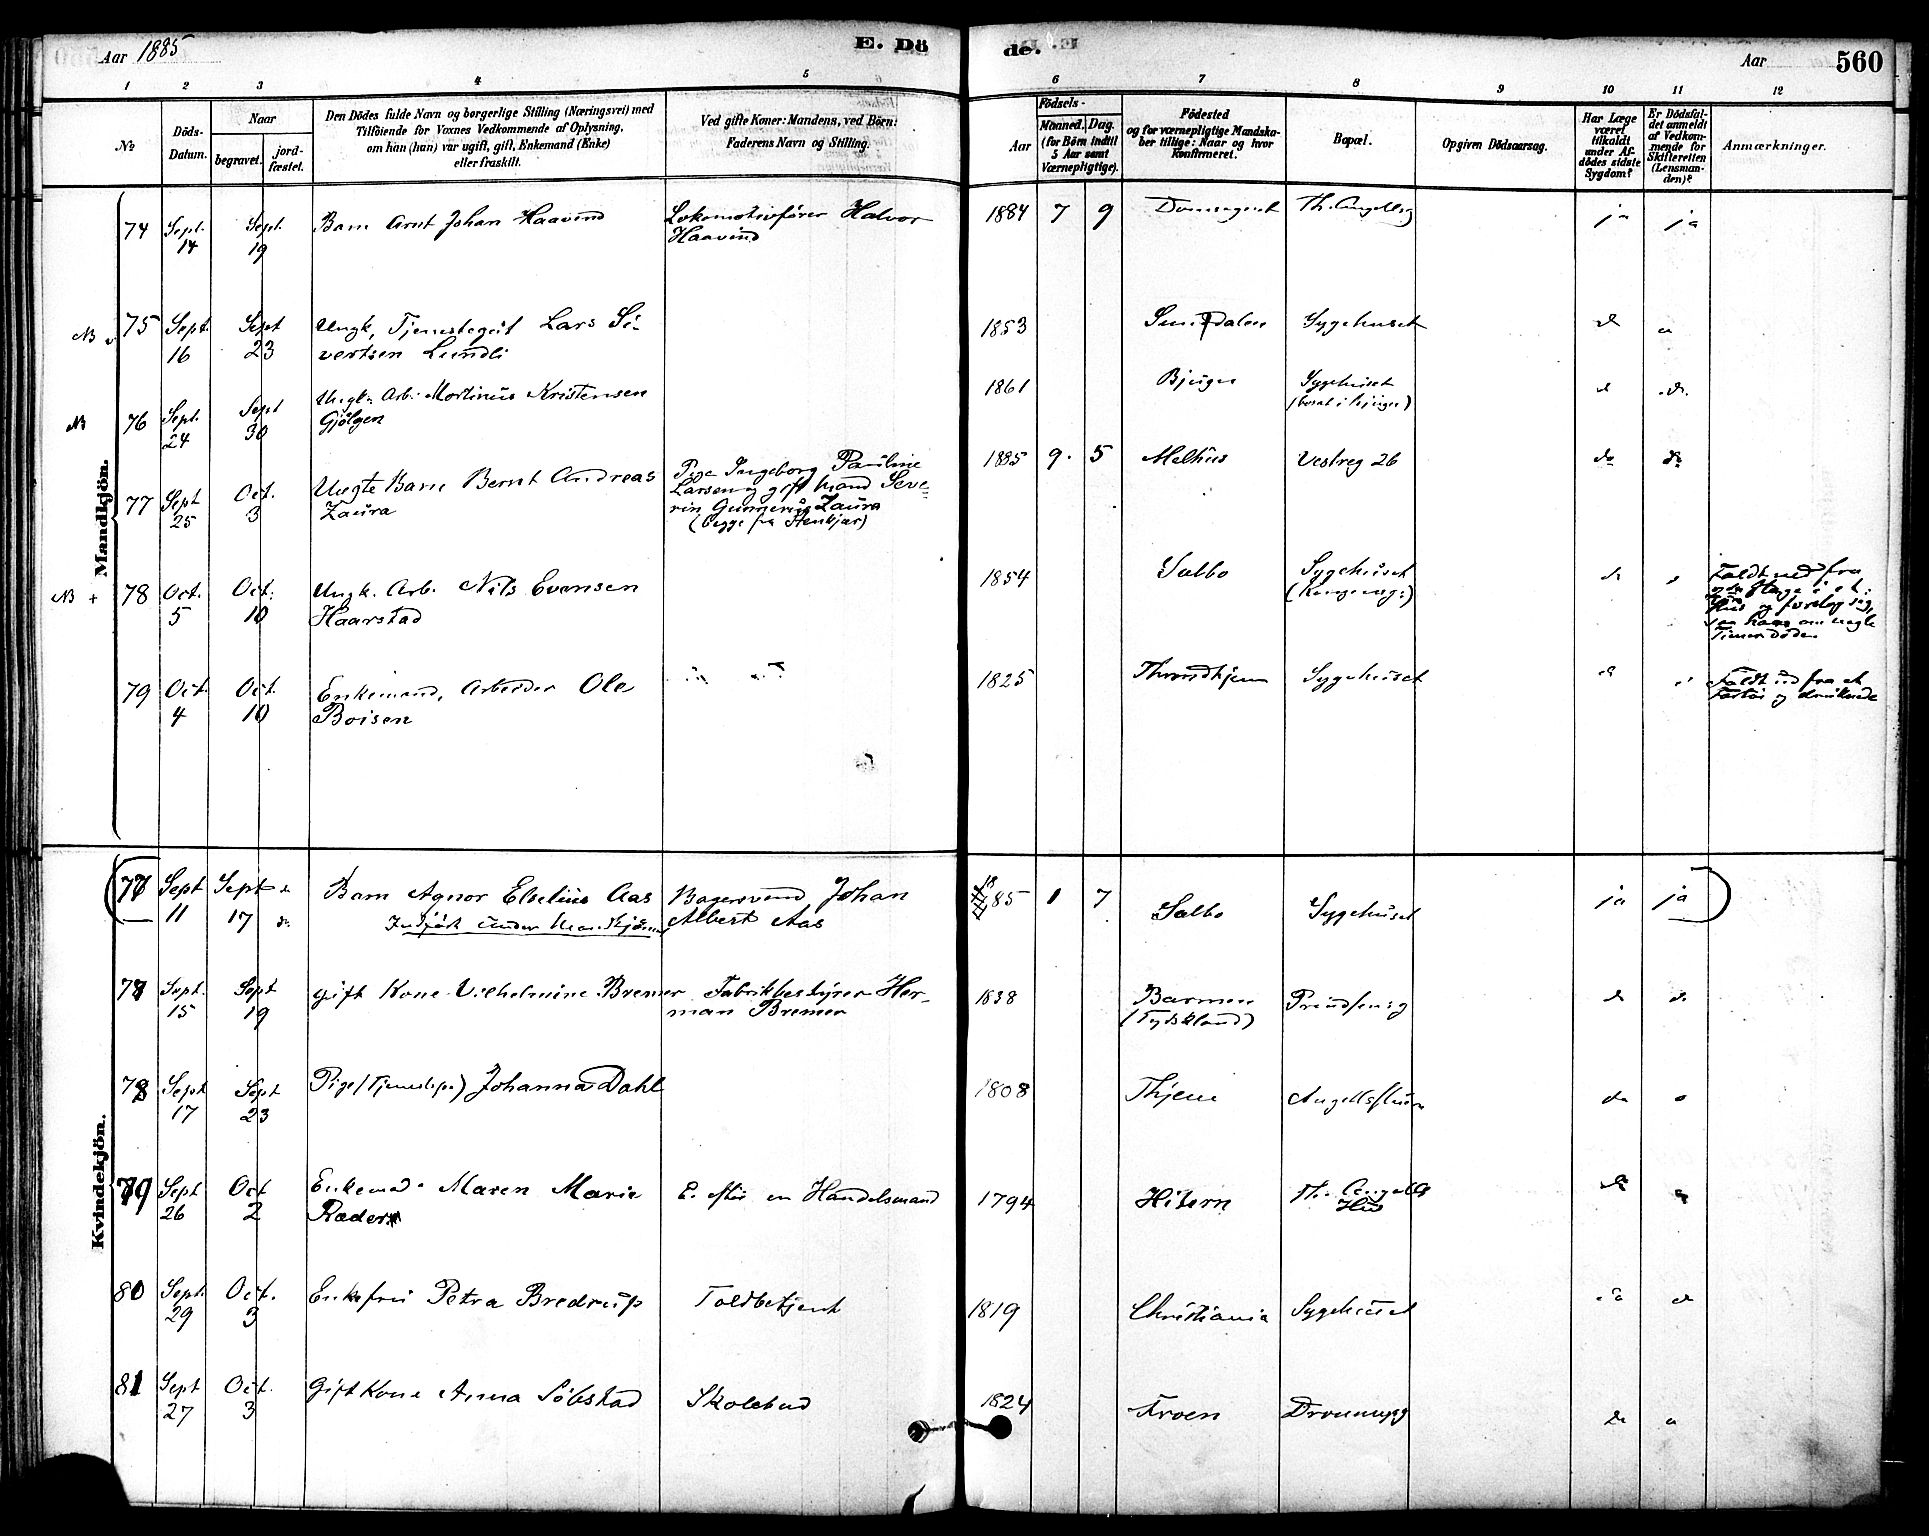 Aar 1885
E. Dö
de.
Aar
560
1 2 3 4 5
6 7 8 9 10 11 12
No
Döds-
Datum.
Naar
begravet.
jord-
fæstet.
Den Dödes fulde Navn og borgerlige Stilling (Næringsvei) med
Tilföiende for Voxnes Vedkommende af Oplysning,
om han (hun) var ugift, gift, Enkemand (Enke)
eller fraskilt.
Ved gifte Koner: Mandens, ved Börn:
Faderens Navn og Stilling.
Födsels-
Aar
Maaned. Dag.
(for Börn indtil
5 Aar samt
Værnepligtige).
Födested
og for værnepligtige Mandska-
ber tillige: Naar og hvor
Konfirmeret.
Bopæl.
Opgiven Dödsaarsag.
Har Læge
været
tilkaldt
under Af-
dödes sidste
Sygdom?
Er Dödsfal-
det anmeldt
af Vedkom-
mende for
Skifteretten
(Lensman-
den)?
Anmærkninger.
Mandkjön.
74 Sept. 14 Sept. 19 Barn Arnt Johan Haavind
Lokomotivförer Halvor
Haavind
1884 7 9 Th. Angellsg ja ja
NB 75 Sept. 16 Sept 23 Ungk, Tjenestegut Lars Si-
vertsen Lundli
1853 Sundalen Sygehuset
NB 76 Sept. 24 Sept 30 Ungk. Arb. Martinus Kristensen
Gjölgen
1861 Bjugn Sygehuset
(bosat i Bjugn)
77 Sept 25 Oct. 3 Uægte Barn Bernt Andreas
Zaura
Pige Ingeborg Pauline
Larsen og gift Mand Seve-
rin Gunnerius Zaura
(begge fra Stenkjær)
1885 9. 5 Melhus Vestreg 26 do do
NB + 78 Oct. 5 Oct. 10 Ungk. Arb. Nils Evensen
Haarstad
1854 Salbo Sygehuset
(Kongensg:)
Faldt ned fra
Hus og forslog sig,
saa han om nogle
Timer döde
79 Oct. 4 Oct. 10 Enkemand, Arbeider Ole
Boisen
1825 Throndhjem Sygehuset
Faldt ud fra et
Fartöi og druknede
Kvindekjön.
77 Sept 11 Sept 17 Barn Agnor Elvelius Aas
Indført under Mandkjönnet
Bagersvend Johan
Albert Aas
1885 1 7 Salbo Sygehuset ja ja
77 Sept. 15 Sept 19 gift Kone Vilhelmine Bremer
Fabrikbestyrer Her-
man Bremer
1838 Barmen
(Tydskland)
Prindsensg
78 Sept 17 Sept 23 Pige (Tjenestepi) Johanna Dahl
1808 Thjem Angellshus
79 Sept 26 Oct 2 Enkemad. Maren Marie
Ræder
E. efter en Handelsmand
1794 Hitern Th. Angells
Hus
80 Sept. 29 Oct. 3 Enkefru Petra Bredrup
Toldbetjent
1819 Christiania Sygehuset
81 Sept 27 Oct. 3 Gift Kone Anna Söbstad
Skolebud
1824 Froen Dronningg